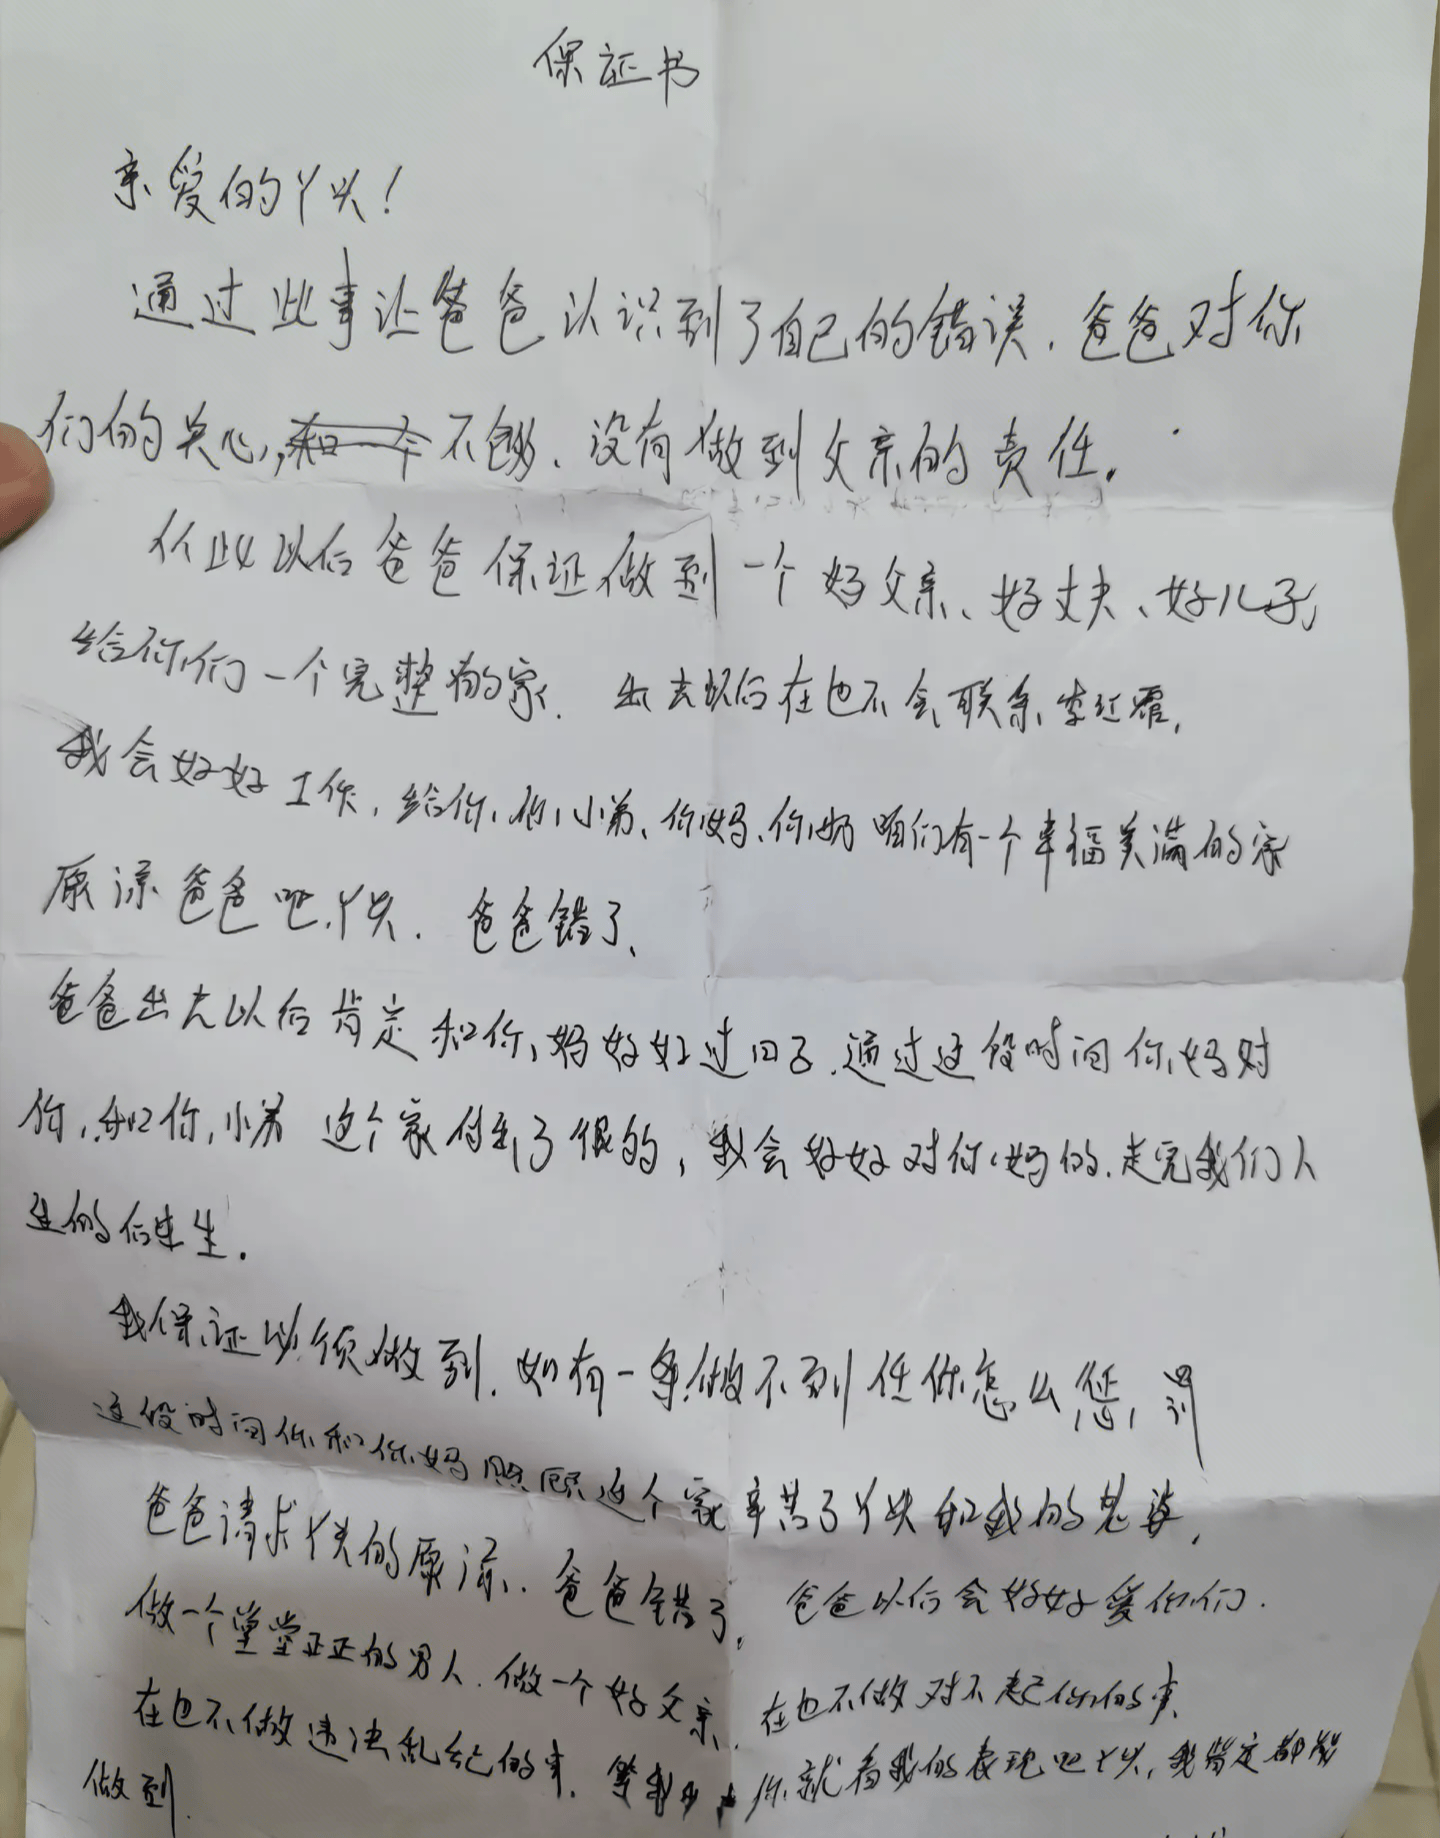 保证书
亲爱的丫头！
通过此事让爸爸认识到了自己的错误．爸爸对你
们的关心，不够．没有做到父亲的责任．
从此以后爸爸保证做到一个好父亲、好丈夫、好儿子，
给你们一个完整的家．出去以后在也不会联系李红霞，
我会好好工作，给你，你小弟、你妈、你奶咱们有一个幸福美满的家
原谅爸爸吧．丫头．爸爸错了、
爸爸出去以后肯定和你妈好好过日子．通过这段时间你妈对
你，和你小弟 这个家付出了很多，我会好好对你妈的．走完我们人
生的后半生．
我保证必须做到．如有一条做不到任你怎么惩罚
这段时间你和你妈照顾这个家辛苦了丫头和我的老婆，
爸爸请求丫头的原谅．爸爸错了．爸爸以后会好好爱你们．
做一个堂堂正正的男人．做一个好父亲．在也不做对不起你们的事．
在也不做违法乱纪的事．等我出去你就看我的表现吧丫头，我肯定都能
做到．